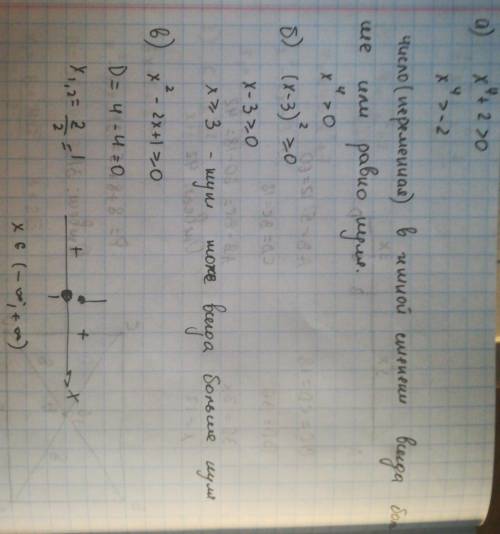 а) x⁴+2>0
x⁴>-2
число (переменная) в чётной степени всегда бол
ше или равно нуля.
x⁴≥0
б) (x-3)²≥0
x-3≥0
x≥3 - нули тоже всегда больше нуля
в) x²-2x+1≥0
D=4-4=0
x₁,₂=2/2=1
+ 1 + x
x∈(-∞;+∞)